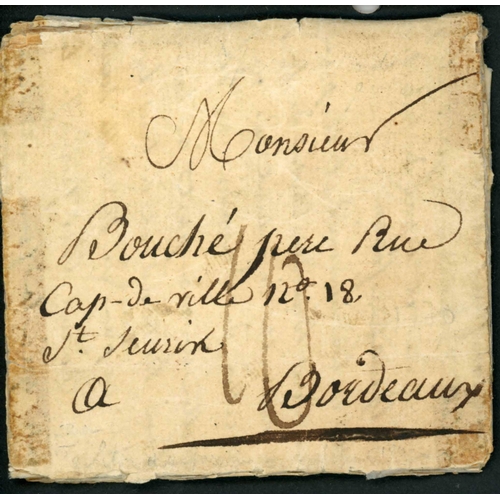 Monsieur
Bouché pere Rue
Cap-de ville n°. 18.
St. Seurin
a Bordeaux
10